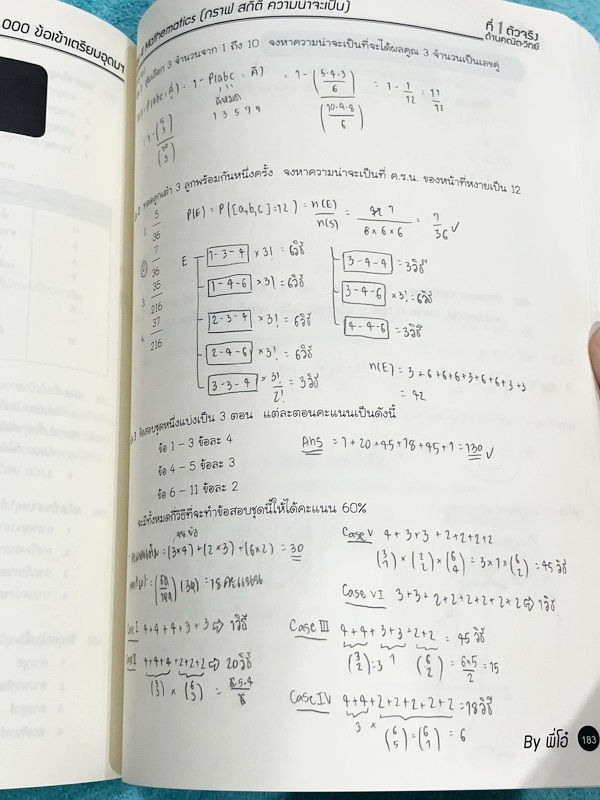 ,000 ข้อเข้าเตรียมอุดมฯ
Mathematics (กราฟ สถิติ ความน่าจะเป็น)
ที่ 1 ตัวจริง
ด้านคณิต-วิทย์
3 จำนวนจาก 1 ถึง 10 จงหาความน่าจะเป็นที่จะได้ผลคูณ 3 จำนวนเป็นเลขคู่
= 1 - P(abc = คี่) = 1 - (5·4·3/6)/(10·9·8/6) = 1 - 1/12 = 11/12
คี่หมด
1 3 5 7 9
= 1 - (5 3)/(10 3)
3 ลูกพร้อมกันหนึ่งครั้ง จงหาความน่าจะเป็นที่ ค.ร.น. ของหน้าที่หงายเป็น 12
1. 5/36
2. 7/36
3. 35/216
4. 37/216
P(E) = P([a,b,c]=12) = n(E)/n(S) = 7/6×6×6 = 7/36 ✓
E
1-3-4 ×3! = 6วิธี
1-4-6 ×3! = 6วิธี
2-3-4 ×3! = 6วิธี
2-4-6 ×3! = 6วิธี
3-3-4 × 3!/2! = 3วิธี
3-4-4 = 3วิธี
3-4-6 ×3! = 6วิธี
4-4-6 = 3วิธี
n(E) = 3+6+6+6+3+6+6+3+3
= 42
ข้อสอบชุดหนึ่งแบ่งเป็น 3 ตอน แต่ละตอนคะแนนเป็นดังนี้
ข้อ 1 – 3 ข้อละ 4
ข้อ 4 – 5 ข้อละ 3
ข้อ 6 – 11 ข้อละ 2
Ans = 1+20+45+18+45+1 = 130 ✓
จะมีทั้งหมดกี่วิธีที่จะทำข้อสอบชุดนี้ให้ได้คะแนน 60%
= (3×4)+(2×3)+(6×2) = 30
(30) = 18 คะแนน
Case I 4+4+4+3+3 ⇨ 1วิธี
Case II 4+4+4+2+2+2 ⇨ 20วิธี
(3 3) × (6 3) = 6·5·4/6
Case III 4+4+3+3+2+2 = 45 วิธี
(3 2)=3 1 (6 2) = 6×5/2 = 15
Case IV 4+4+2+2+2+2+2 = 18วิธี
3 × (6 5) = (6 1) = 6
Case V 4+3+3+2+2+2+2
(3 1) × (2 2) × (6 4) = 3×1×(6 2) = 45 วิธี
Case VI 3+3+2+2+2+2+2+2 ⇨ 1วิธี
By พี่โอ๋
183